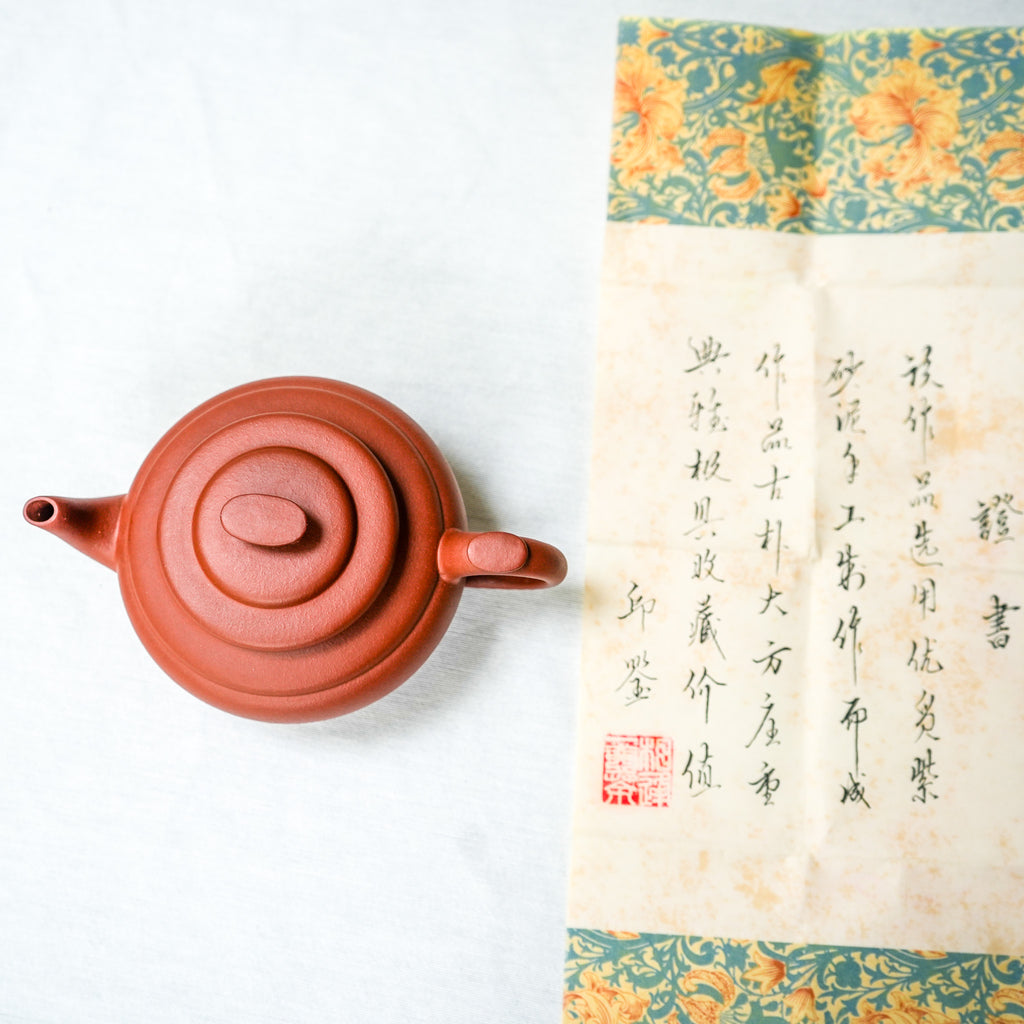 證書
该作品选用优质紫
砂泥手工制作而成
作品古朴大方庄重
典雅极具收藏价值
邱鉴